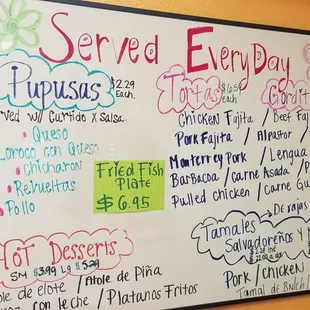 Served EveryDay
Pupusas $2.29 Each.
Served w/ Curtido x Salsa
• Queso
Loroco con Queso
• Chicharon
• Revueltas
• Pollo
Fried Fish
Plate
$ 6.95
Hot Desserts
SM $3.99 LG $5.29
Atole de elote / Atole de Piña
con leche / Platanos Fritos
Tortas $6.50 each
Chicken Fajita /
Pork Fajita /
Monterrey Pork /
Barbacoa / Carne Asada /
Pulled chicken / Carne
Gordit
Beef Faj
Al pastor
Lengua
→ De rajas
Tamales
Salvadoreños Y
Pork / Chicken
Tamal de